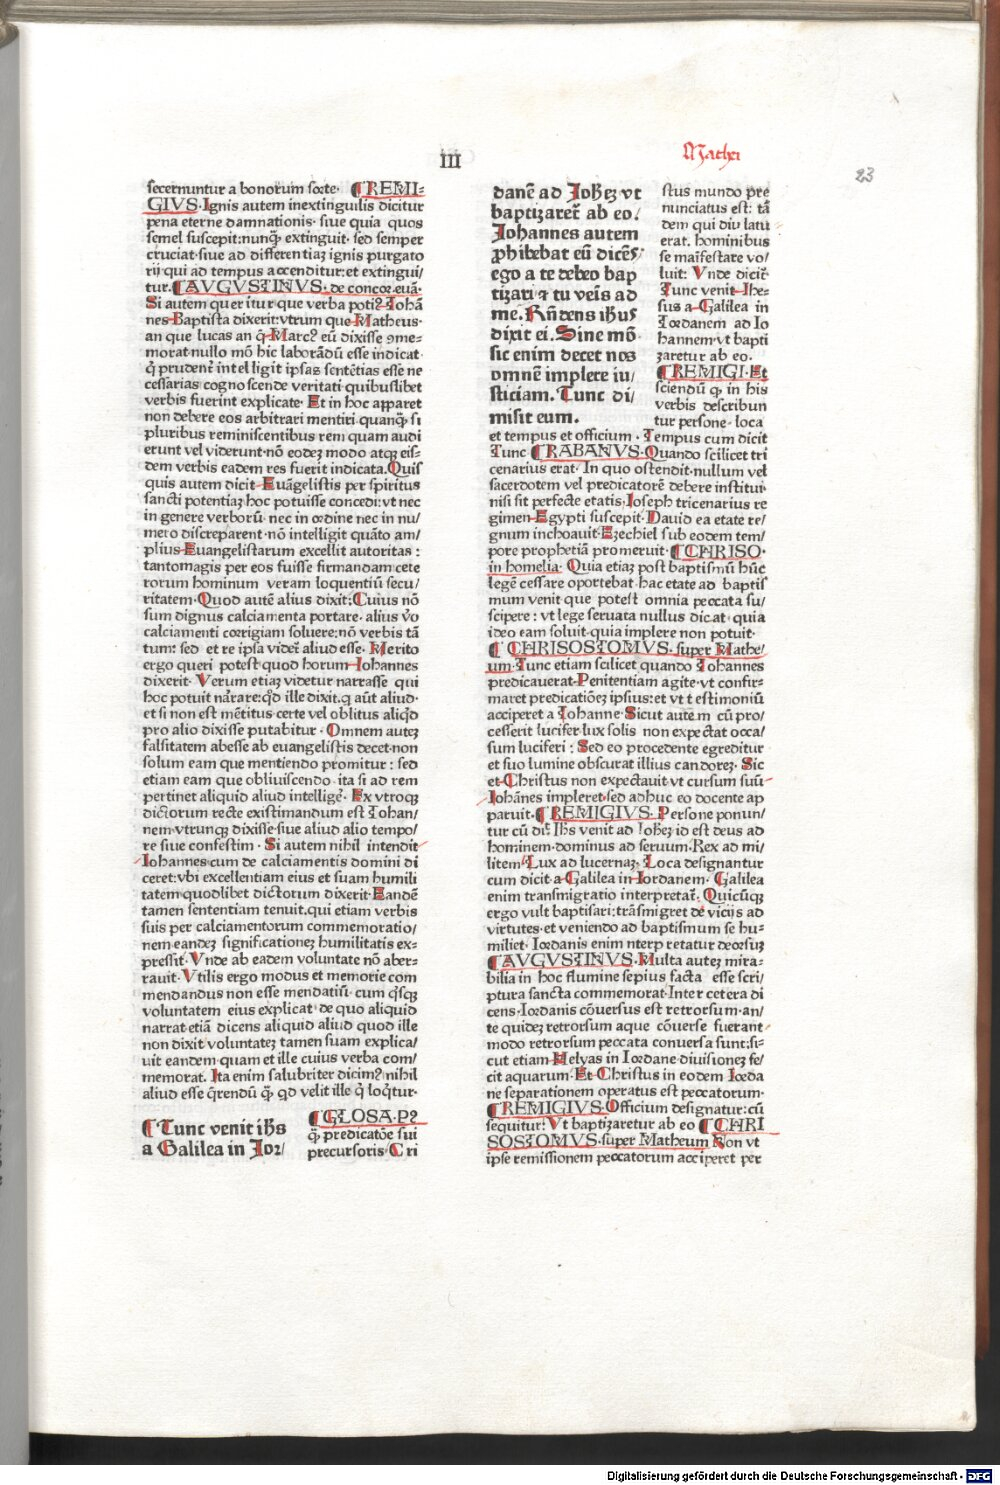 III
Mathei
23
secernuntur a bonorum sorte. REMI-
GIVS. Ignis autem inextinguilis dicitur
pena eterne damnationis. siue quia quos
semel suscepit: nunq̃ extinguit. sed semper
cruciat. siue ad differentiaz ignis purgato
rij qui ad tempus accenditur: et extingui/
tur. AVGVSTINVS. de concor. euã.
Si autem queritur que verba poti? Iohã
nes Baptista dixerit: vtrum que Matheus.
an que lucas an q̃ Marc? eũ dixisse 9me-
morat. nullo mõ hic laborãdũ esse indicat.
q̃ prudent̃ intelligit ipsas sentẽtias esse ne
cessarias cognoscende veritati quibuslibet
verbis fuerint explicate. Et in hoc apparet
non debere eos arbitrari mentiri. quanq̃ si
pluribus reminiscentibus rem quam audi
erunt vel viderunt. nõ eodez modo atqz eis-
dem verbis eadem res fuerit indicata. Quis
quis autem dicit Euãgelistis per spiritus
sancti potentiaz hoc potuisse concedi: vt nec
in genere verborũ nec in ordine nec in nu/
mero discreparent. nõ intelligit quãto am/
plius Euangelistarum excellit autoritas:
tantomagis per eos fuisse firmandam cete
rorum hominum veram loquentiũ secu/
ritatem. Quod autẽ alius dixit: Cuius nõ
sum dignus calciamenta portare. alius v̊o
calciamenti corrigiam soluere: nõ verbis tã
tum: sed et re ipsa videt̃ aliud esse. Merito
ergo queri potest quod horum Iohannes
dixerit. Verum etiaz videtur narrasse qui
hoc potuit narrare: qd̃ ille dixit. q aũt aliud.
et si non est mẽtitus certe vel oblitus aliqd̃
pro alio dixisse putabitur. Omnem autez
falsitatem abesse ab euangelistis decet. non
solum eam que mentiendo promitur: sed
etiam eam que obliuiscendo. ita si ad rem
pertinet aliquid aliud intelligẽ. Ex vtroqz
dictorum recte existimandum est Iohan/
nem vtrunqz dixisse. siue aliud alio tempo/
re siue confestim. Si autem nihil intendit
Iohannes. cum de calciamentis domini di
ceret: vbi excellentiam eius et suam humili
tatem quodlibet dictorum dixerit. Eandẽ
tamen sententiam tenuit. qui etiam verbis
suis per calciamentorum commemoratio/
nem eandez significationez humilitatis ex-
pressit. Vnde ab eadem voluntate nõ aber-
rauit. Vtilis ergo modus et memorie com
mendandus non esse mendatiũ. cum q̃sqz
voluntatem eius explicat. de quo aliquid
narrat. etiã dicens aliquid aliud quod ille
non dixit voluntatez tamen suam explica/
uit eandem quam et ille cuius verba com/
memorat. Ita enim salubriter dicim? nihil
aliud esse q̃rendũ q̃ qd velit ille q̃ loq̃tur.
Tunc venit ihs
a Galilea in Jor/
GLOSA. P?
q̃ predicatõe sui
precursoris Cri
danẽ ad Johez vt
baptizaret̃ ab eo.
Johannes autem
ꝓhibebat eũ dicẽs
ego a te debeo bap
tizari ⁊ tu veĩs ad
me. Rñdens ihus
dixit ei. Sine mõ
sic enim decet nos
omnẽ implere iu/
sticiam. Tunc di/
misit eum.
stus mundo pre
nunciatus est: tã
dem qui diu latu
erat. hominibus
se maĩfestare vo/
luit: Vnde dicit̃
Tunc venit Ihe-
sus a Galilea in
Iordanem ad Io
hannem vt bapti
zaretur ab eo.
REMIGI. Et
sciendũ q̃ in his
verbis describun
tur persone. loca
et tempus et officium. Tempus cum dicit
Tunc RABANVS. Quando scilicet tri
cenarius erat. In quo ostendit. nullum vel
sacerdotem vel predicatorẽ debere institui.
nisi sit perfecte etatis. Ioseph tricenarius re
gimen Egypti suscepit. Dauid ea etate re/
gnum inchoauit. Ezechiel sub eodem tem/
pore prophetiã promeruit. CHRISO.
in homelia. Quia etiaz post baptismũ hũc
legẽ cessare oportebat. hac etate ad baptis
mum venit que potest omnia peccata su/
scipere: vt lege seruata nullus dicat. quia
ideo eam soluit. quia implere non potuit.
CHRISOSTOMVS. super Mathe/
um. Tunc etiam scilicet quando Iohannes
predicauerat. Penitentiam agite. vt confir-
maret predicationez ipsius: et vt testimoniũ
acciperet a Iohanne. Sicut autem cũ pro/
cesserit lucifer. lux solis non expectat occa/
sum luciferi: Sed eo procedente egreditur
et suo lumine obscurat illius candorez. Sic
et Christus non expectauit vt cursum suũ
Iohãnes impleret. sed adhuc eo docente ap
paruit. REMIGIVS. Persone ponun/
tur cũ dir̃. Ihs venit ad Iohez id est deus ad
hominem. dominus ad seruum. Rex ad mi/
litem. Lux ad lucernaz. Loca designantur
cum dicit a Galilea in Iordanem. Galilea
enim transmigratio interpretat̃. Quicũqz
ergo vult baptisari: trãsmigret de vicijs ad
virtutes. et veniendo ad baptismum se hu-
miliet. Iordanis enim nterpretatur deorsuz
AVGVSTINVS. Multa autez mira-
bilia in hoc flumine sepius facta esse scri/
ptura sancta commemorat. Inter cetera di
cens. Iordanis cõuersus est retrorsum. an/
te quidez retrorsum aque cõuerse fuerant
modo retrorsum peccata conuersa sunt: si-
cut etiam Helyas in Iordane diuisionez fe/
cit aquarum. Et Christus in eodem Iorda
ne separationem operatus est peccatorum.
REMIGIVS. Officium designatur: cũ
sequitur: Vt baptizaretur ab eo CHRI
SOSTOMVS. super Matheum Non vt
ipse remissionem peccatorum acciperet per
Digitalisierung gefördert durch die Deutsche Forschungsgemeinschaft - DFG